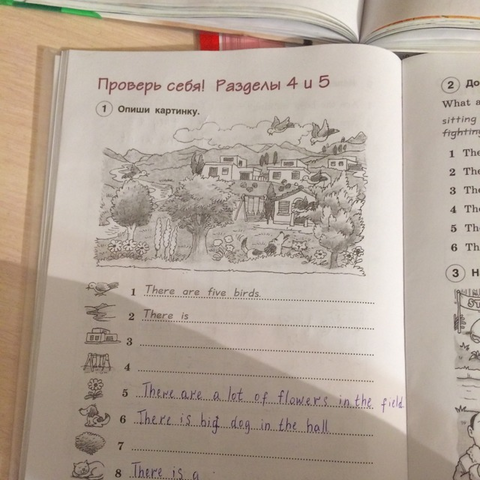 Проверь себя! Разделы 4 и 5
1 Опиши картинку.
1 There are five birds.
2 There is
3
4
5 There are a lot of flowers in the field
6 There is big dog in the hall
7
8 There is a
2 До
What a
sitting
fighting
1 The
2 The
3 The
4 The
5 The
6 The
3 Н